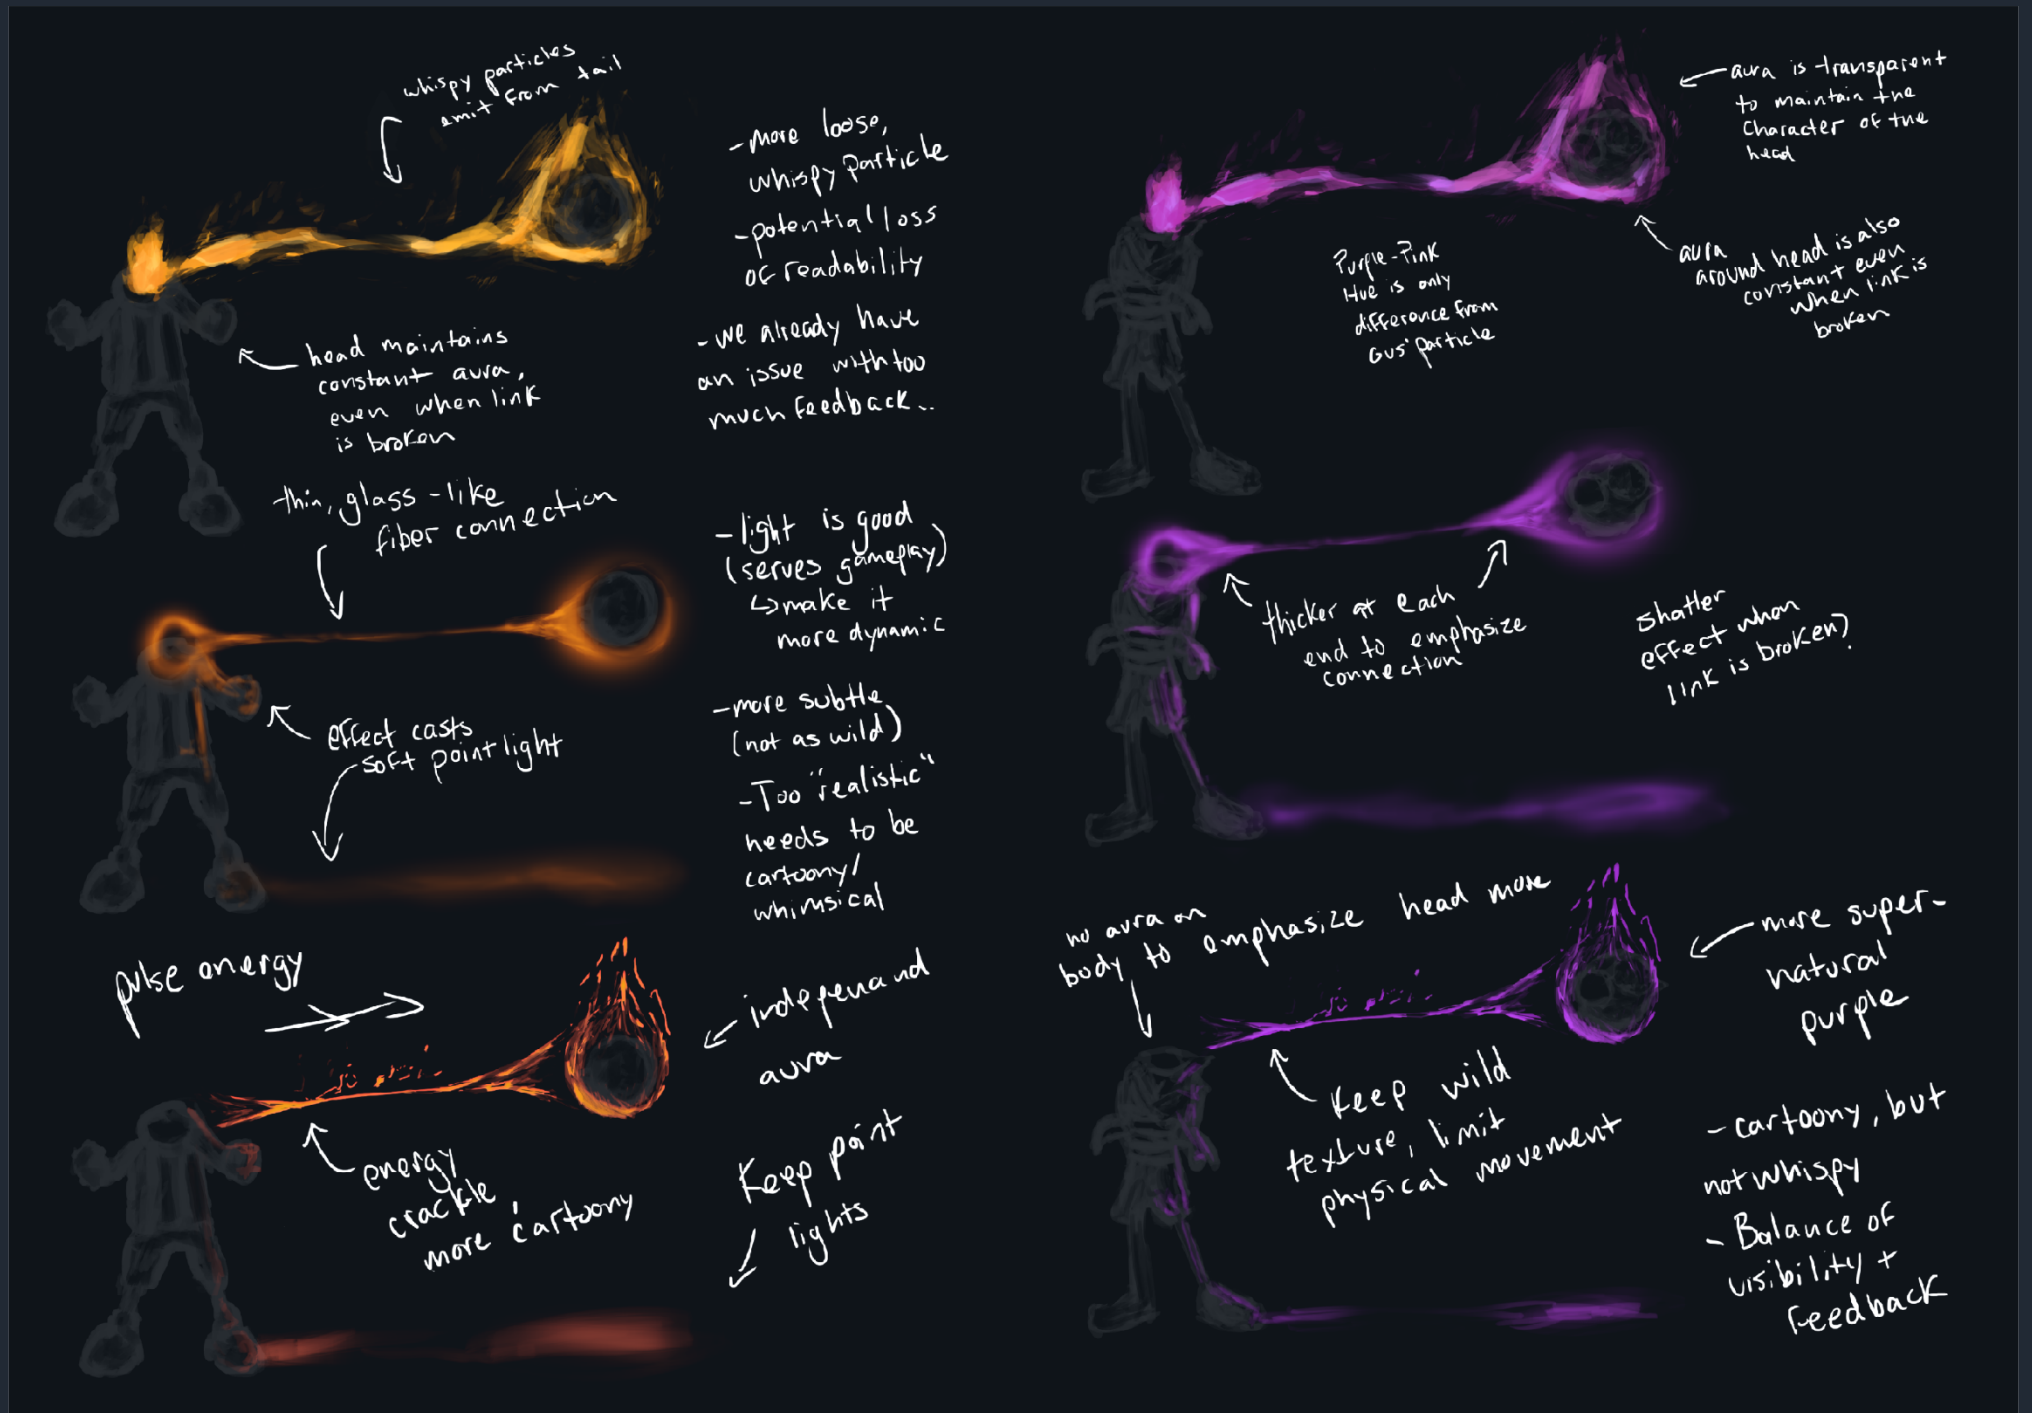 whispy particles
emit from tail
- more loose,
whispy particle
- potential loss
of readability
- we already have
an issue with too
much feedback..
head maintains
constant aura,
even when link
is broken
thin, glass-like
fiber connection
- light is good
(serves gameplay)
↳ make it
more dynamic
- more subtle
(not as wild)
- Too "realistic"
needs to be
cartoony/
whimsical
effect casts
soft point light
pulse energy
independand
aura
energy
crackle,
more cartoony
Keep point
lights
aura is transparent
to maintain the
Character of the
head
aura
around head is also
constant even
when link is
broken
Purple-Pink
Hue is only
difference from
Gus' particle
thicker at each
end to emphasize
connection
shatter
effect when
link is broken?
no aura on
body to emphasize head more
more super-
natural
purple
Keep wild
texture, limit
physical movement
- cartoony, but
not whispy
- Balance of
visibility +
Feedback